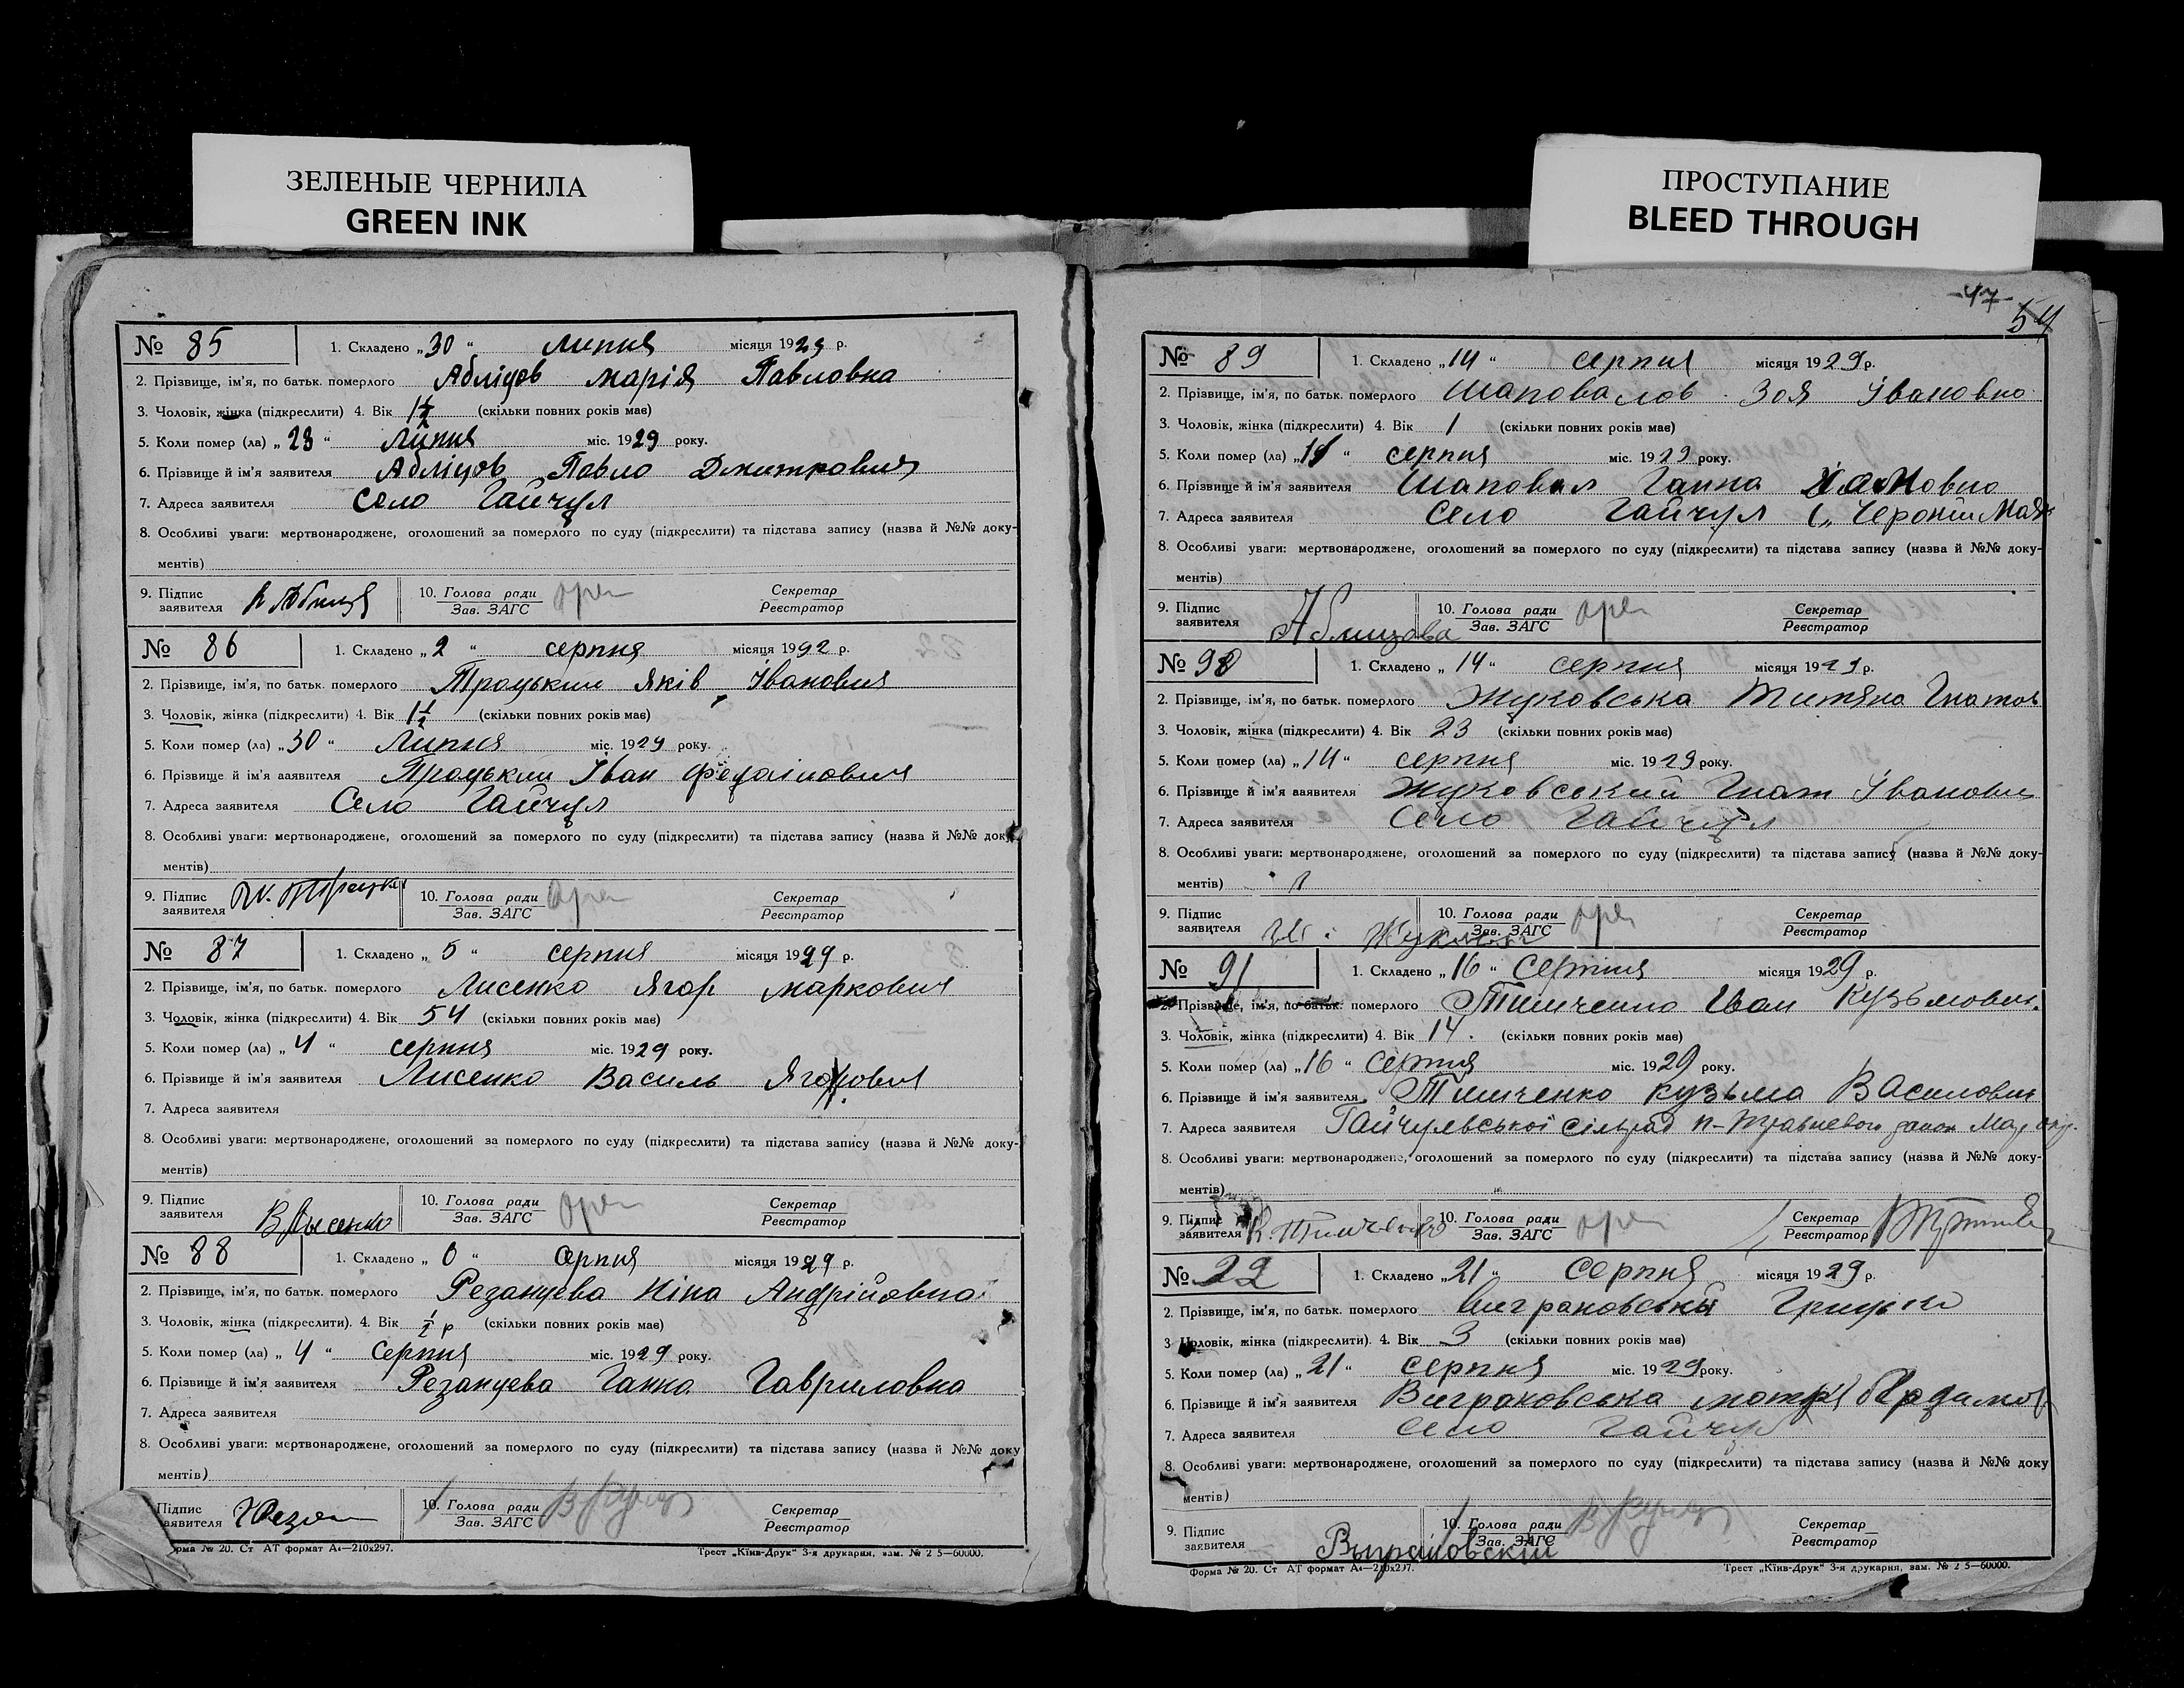 ЗЕЛЕНЫЕ ЧЕРНИЛА
GREEN INK
ПРОСТУПАНИЕ
BLEED THROUGH
№ 85 1. Складено „30“ липня місяця 1929 р.
2. Прізвище, ім'я, по батьк. померлого Абліцов Марія Павловна
3. Чоловік, жінка (підкреслити) 4. Вік 1½ (скільки повних років має)
5. Коли помер (ла) „23“ Липня міс. 1929 року.
6. Прізвище й ім'я заявителя Абліцов Павло Дмитрович
7. Адреса заявителя Село Гайчул
8. Особливі уваги: мертвонароджене, оголошений за померлого по суду (підкреслити) та підстава запису (назва й №№ доку-
ментів)
9. Підпис заявителя 10. Голова ради Зав. ЗАГС Секретар Реєстратор
№ 86 1. Складено „2“ серпня місяця 1992 р.
2. Прізвище, ім'я, по батьк. померлого Троцький Яків Іванович
3. Чоловік, жінка (підкреслити) 4. Вік 1½ (скільки повних років має)
5. Коли помер (ла) „30“ Липня міс. 1929 року.
6. Прізвище й ім'я заявителя Троцький Іван
7. Адреса заявителя Село Гайчул
8. Особливі уваги: мертвонароджене, оголошений за померлого по суду (підкреслити) та підстава запису (назва й №№ доку-
ментів)
9. Підпис заявителя 10. Голова ради Зав. ЗАГС Секретар Реєстратор
№ 87 1. Складено „5“ серпня місяця 1929 р.
2. Прізвище, ім'я, по батьк. померлого Лисенко Ягор Маркович
3. Чоловік, жінка (підкреслити) 4. Вік 54 (скільки повних років має)
5. Коли помер (ла) „4“ серпня міс. 1929 року.
6. Прізвище й ім'я заявителя Лисенко Василь Ягорович
7. Адреса заявителя
8. Особливі уваги: мертвонароджене, оголошений за померлого по суду (підкреслити) та підстава запису (назва й №№ доку-
ментів)
9. Підпис заявителя В Лысенко 10. Голова ради Зав. ЗАГС Секретар Реєстратор
№ 88 1. Складено серпня місяця 1929 р.
2. Прізвище, ім'я, по батьк. померлого Резанцева Ніна Андрійовна
3. Чоловік, жінка (підкреслити). 4. Вік ½ р (скільки повних років має)
5. Коли помер (ла) „4“ Серпня міс. 1929 року.
6. Прізвище й ім'я заявителя Резанцева Ганна Гавриловна
7. Адреса заявителя
8. Особливі уваги: мертвонароджене, оголошений за померлого по суду (підкреслити) та підстава запису (назва й №№ доку
ментів)
Підпис заявителя 10. Голова ради Зав. ЗАГС Секретар Реєстратор
рма № 20. Ст АТ формат А4—210х297. Трест „Київ-Друк“ 3-я друкарня, зам. № 2 5—60000.
47
54
№ 89 1. Складено „14“ серпня місяця 1929 р.
2. Прізвище, ім'я, по батьк. померлого Шаповалов Зоя Івановно
3. Чоловік, жінка (підкреслити) 4. Вік 1 (скільки повних років має)
5. Коли помер (ла) серпня міс. 1929 року.
6. Прізвище й ім'я заявителя Шаповал Ганна
7. Адреса заявителя Село Гайчул
8. Особливі уваги: мертвонароджене, оголошений за померлого по суду (підкреслити) та підстава запису (назва й №№ доку-
ментів)
9. Підпис заявителя Аблицова 10. Голова ради Зав. ЗАГС Секретар Реєстратор
№ 90 1. Складено „14“ серпня місяця 1929 р.
2. Прізвище, ім'я, по батьк. померлого Жуковська Титяна Гнатов
3. Чоловік, жінка (підкреслити) 4. Вік 23 (скільки повних років має)
5. Коли помер (ла) „14“ серпня міс. 1929 року.
6. Прізвище й ім'я заявителя Жуковський Гнат Іванович
7. Адреса заявителя Село Гайчул
8. Особливі уваги: мертвонароджене, оголошений за померлого по суду (підкреслити) та підстава запису (назва й №№ доку-
ментів)
9. Підпис заявителя 10. Голова ради Зав. ЗАГС Секретар Реєстратор
№ 91 1. Складено „16“ Серпня місяця 1929 р.
2. Прізвище, ім'я, по батьк. померлого Тимченко Іван Кузьмович.
3. Чоловік, жінка (підкреслити) 4. Вік 14. (скільки повних років має)
5. Коли помер (ла) „16“ Серпня міс. 1929 року.
6. Прізвище й ім'я заявителя Тимченко Кузьма Василович
7. Адреса заявителя Гайчулвської сільрад н-Травневого район Мар. окр.
8. Особливі уваги: мертвонароджене, оголошений за померлого по суду (підкреслити) та підстава запису (назва й №№ доку-
ментів)
9. Підпис заявителя К. Тимченко 10. Голова ради Зав. ЗАГС Секретар Реєстратор
№ 22 1. Складено „21“ Серпня місяця 1929 р.
2. Прізвище, ім'я, по батьк. померлого Виграновський
3. Чоловік, жінка (підкреслити). 4. Вік 3 (скільки повних років має)
5. Коли помер (ла) „21“ Серпня міс. 1929 року.
6. Прізвище й ім'я заявителя Виграновська
7. Адреса заявителя Село Гайчул
8. Особливі уваги: мертвонароджене, оголошений за померлого по суду (підкреслити) та підстава запису (назва й №№ доку
ментів)
9. Підпис заявителя 10. Голова ради Зав. ЗАГС Секретар Реєстратор
Форма № 20. Ст АТ формат А4—210х297. Трест „Київ-Друк“ 3-я друкарня, зам. № 2 5—60000.